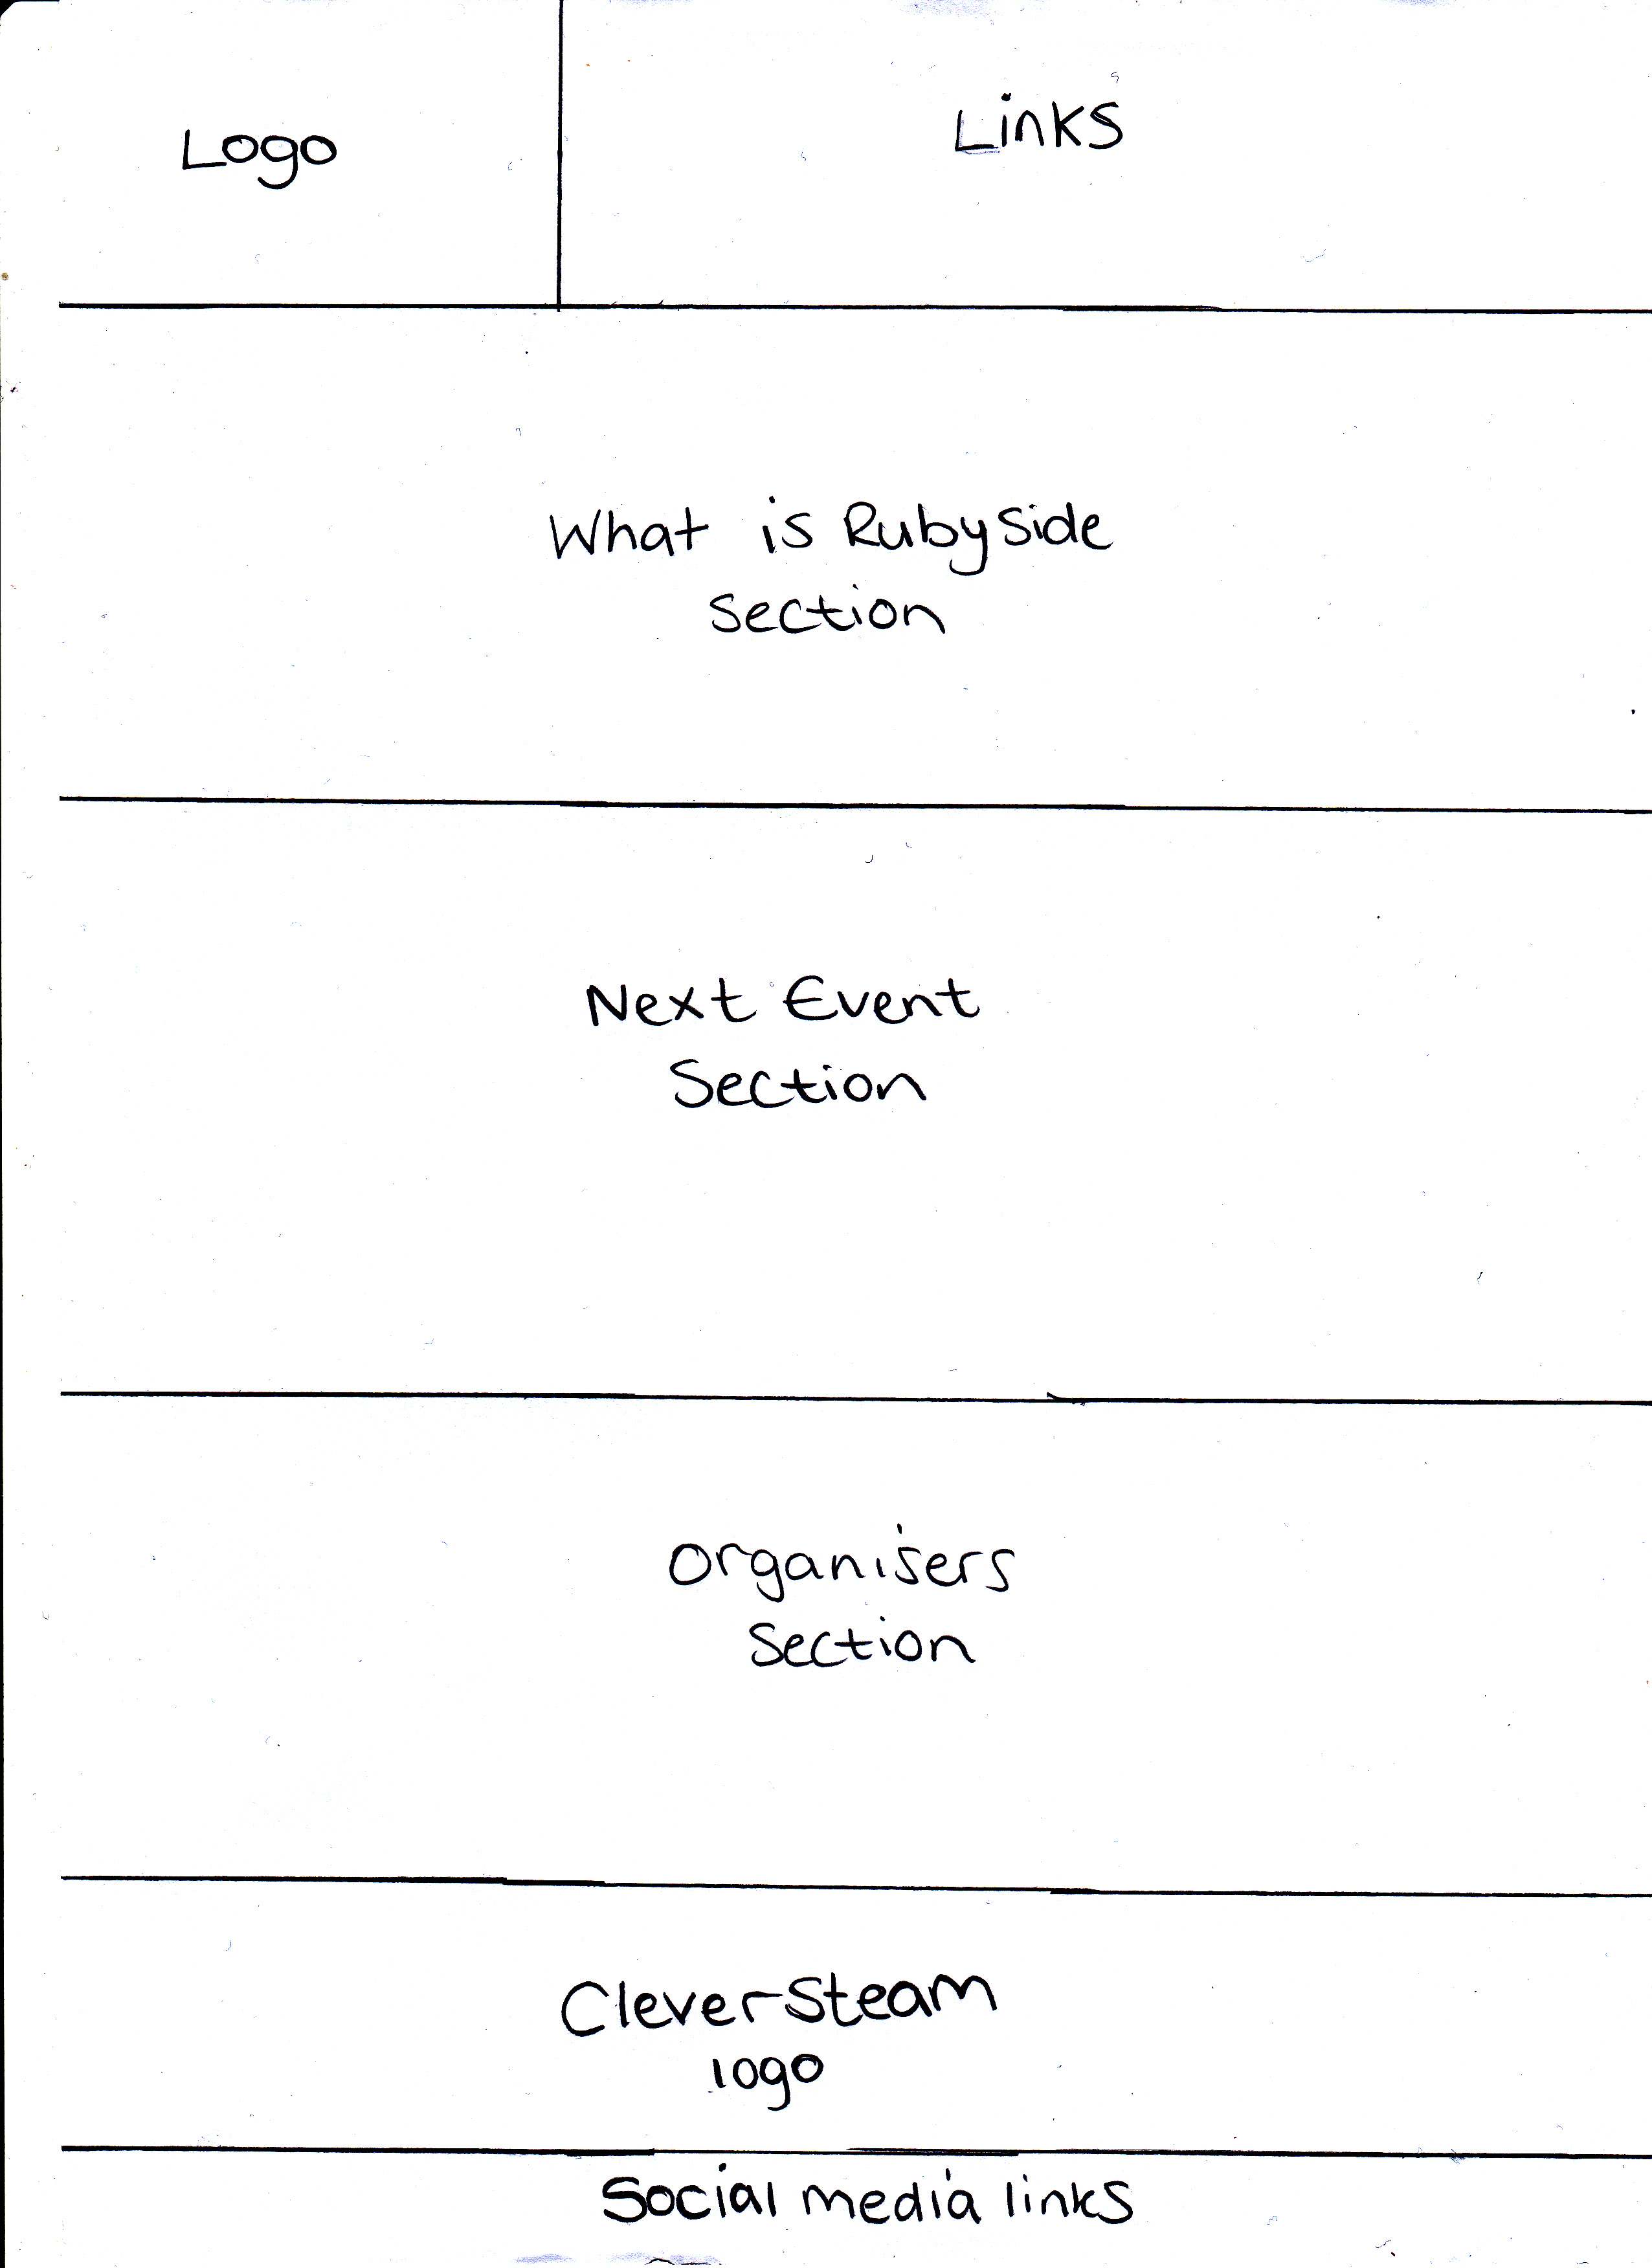 Logo
Links
What is RubySide
Section
Next Event
Section
Organisers
Section
CleverSteam
logo
Social media links